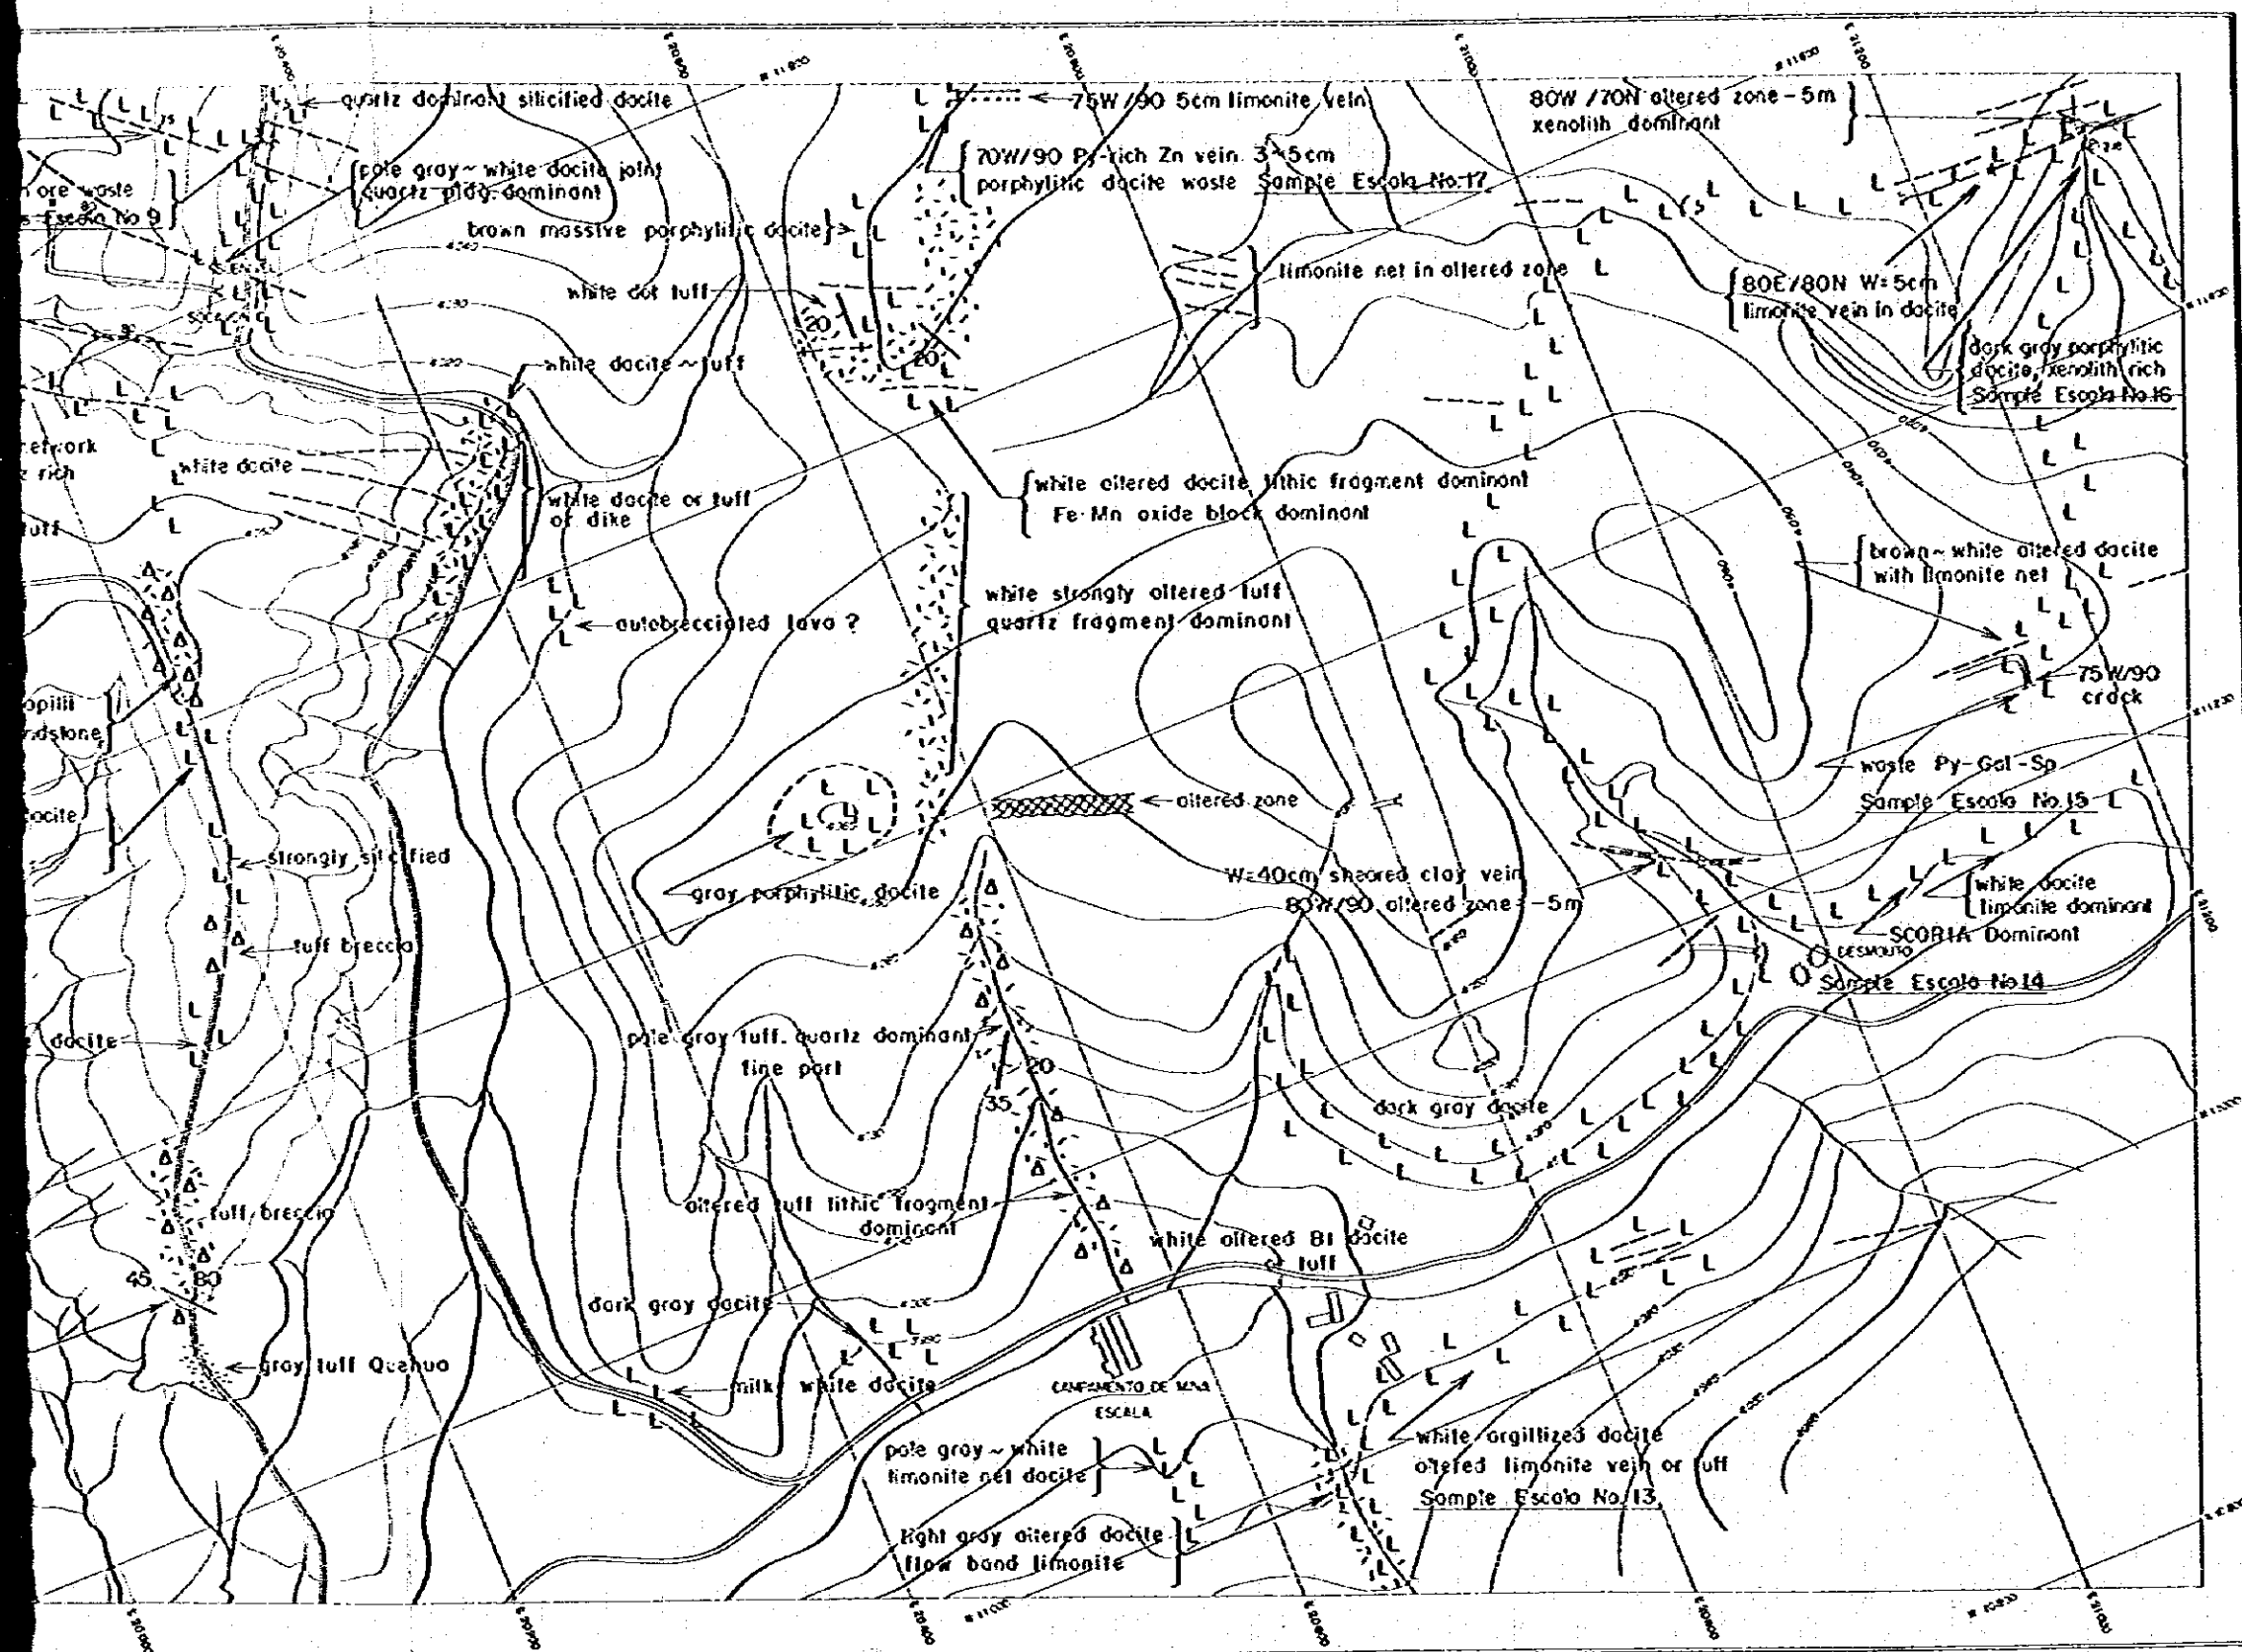 E 20400
E 20600
N 11800
E 20800
E 21000
N 11600
E 21200
quartz dominant silicified dacite
75W/90 5cm limonite vein
80W/70N altered zone-5m
xenolith dominant
n ore waste
s Escala No 9
pale gray~white dacite joint
quartz plag. dominant
70W/90 Py-rich Zn vein 3~5cm
porphylitic dacite waste Sample Escala No.17
brown massive porphylitic dacite
limonite net in altered zone
white dot tuff
80E/80N W=5cm
limonite vein in dacite
20
20
white dacite~tuff
dark gray porphylitic
dacite, xenolith rich
Sample Escala No.16
etwork
rich
white dacite
white dacite or tuff
or dike
white altered dacite lithic fragment dominant
Fe·Mn oxide block dominant
tuff
brown~white altered dacite
with limonite net
autobrecciated lava ?
white strongly altered tuff
quartz fragment dominant
75W/90
crack
apilli
ndstone
waste Py-Gal-Sp
Sample Escala No.15
altered zone
acite
strongly silicified
gray porphylitic dacite
W=40cm sheared clay vein
80W/90 altered zone -5m
white dacite
limonite dominant
tuff breccia
SCORIA Dominant
DESMONTO
Sample Escala No14
dacite
pale gray tuff. quartz dominant
fine part
20
35
dark gray dacite
tuff breccia
altered tuff lithic fragment
dominant
white altered Bi dacite
tuff
45
80
dark gray dacite
gray tuff Quehua
milky white dacite
CAMPAMENTO DE MINA
ESCALA
pale gray~white
limonite net dacite
white argillized dacite
altered limonite vein or tuff
Sample Escala No.13
light gray altered dacite
flow band limonite
E 20000
E 20200
E 20400
N 11000
E 20600
E 20800
N 10800
E 21000